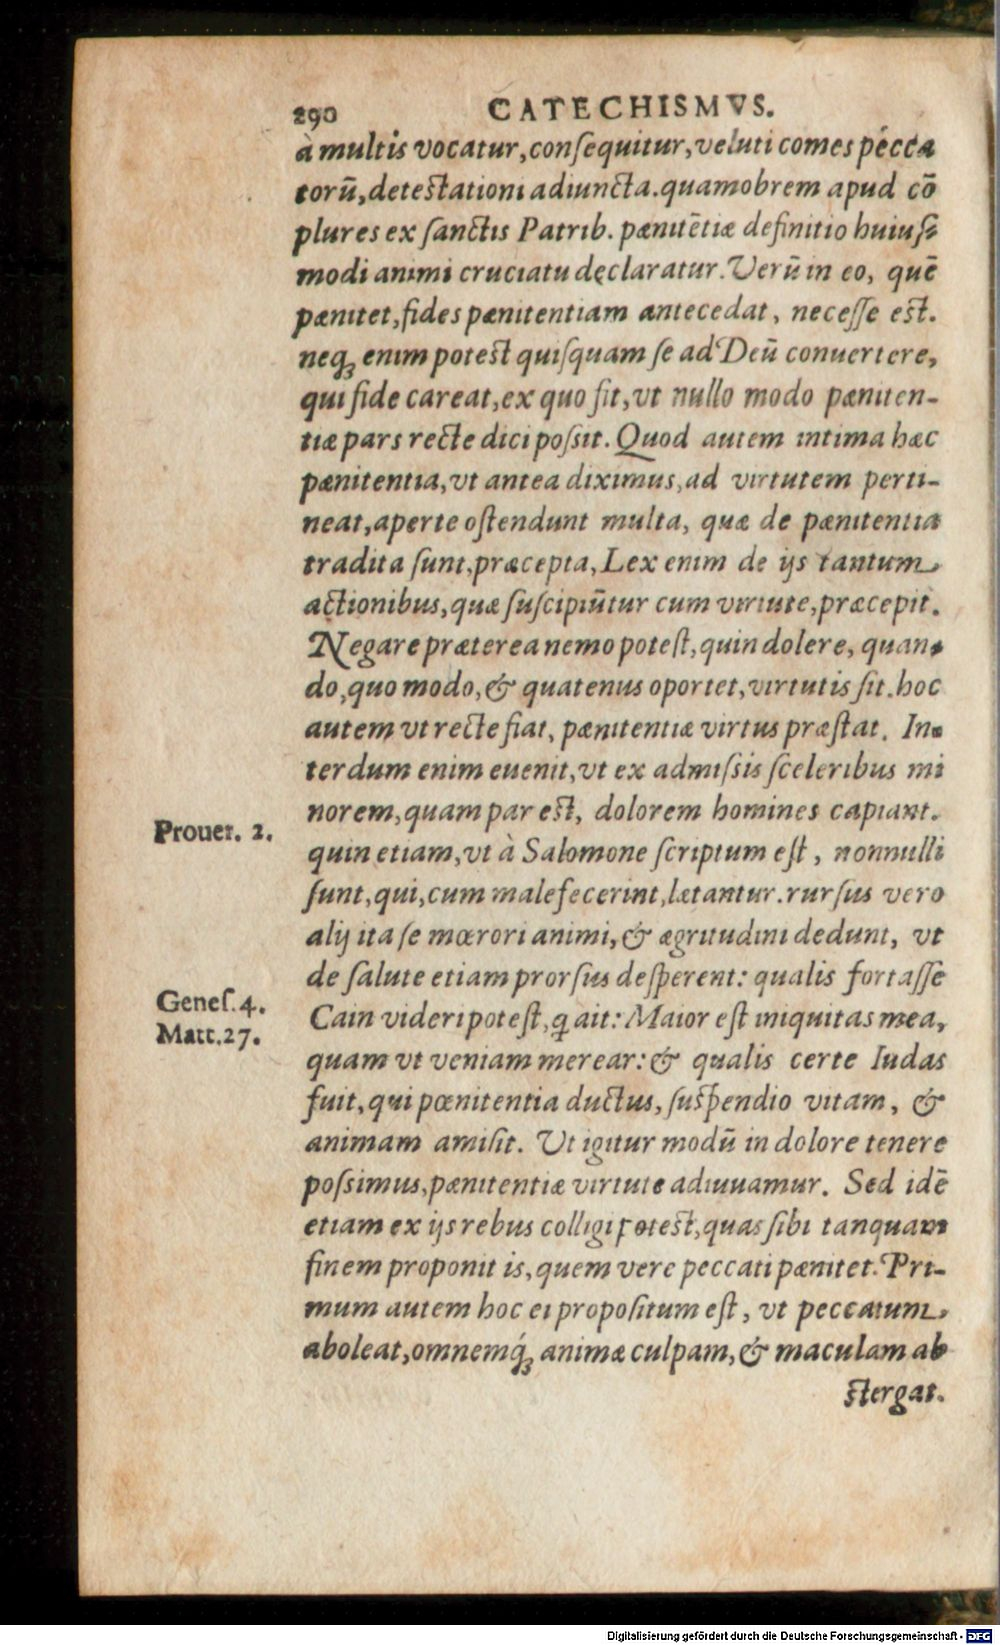 290 CATECHISMVS.
à multis vocatur, conſequitur, veluti comes pécca
torũ, deteſtationi adiuncta. quamobrem apud cõ
plures ex ſanctis Patrib. pænitẽtiæ definitio huiuſi
modi animi cruciatu dęclaratur. Verũ in eo, quẽ
pænitet, fides pænitentiam antecedat, neceſſe eſt.
neq; enim poteſt quiſquam ſe ad Deũ conuertere,
qui fide careat, ex quo fit, vt nullo modo pæniten-
tiæ pars recte dici poſsit. Quod autem intima hæc
pænitentia, vt antea diximus, ad virtutem perti-
neat, aperte oſtendunt multa, quæ de pænitentia
tradita ſunt, præcepta, Lex enim de ijs tantum
actionibus, quæ ſuſcipiũtur cum virtute, præcepit.
Negare præterea nemo poteſt, quin dolere, quan-
do, quo modo, & quatenus oportet, virtutis ſit. hoc
autem vt recte fiat, pænitentiæ virtus præſtat. In-
terdum enim euenit, vt ex admiſsis ſceleribus mi
norem, quam par eſt, dolorem homines capiant.
Prouer. 2.
quin etiam, vt à Salomone ſcriptum eſt, nonnulli
ſunt, qui, cum malefecerint, lætantur. rurſus vero
alij ita ſe mœrori animi, & ægritudini dedunt, vt
de ſalute etiam prorſus deſperent: qualis fortaſſe
Geneſ. 4.
Cain videri poteſt, q ait: Maior eſt iniquitas mea,
Matt. 27.
quam vt veniam merear: & qualis certe Iudas
fuit, qui pœnitentia ductus, ſuſpendio vitam, &
animam amiſit. Vt igitur modũ in dolore tenere
poſsimus, pænitentiæ virtute adiuuamur. Sed idẽ
etiam ex ijs rebus colligi poteſt, quas ſibi tanquam
finem proponit is, quem vere peccati pænitet. Pri-
mum autem hoc ei propoſitum eſt, vt peccatum
aboleat, omnemq́; animæ culpam, & maculam ab
ſtergat.
Digitalisierung gefördert durch die Deutsche Forschungsgemeinschaft - DFG